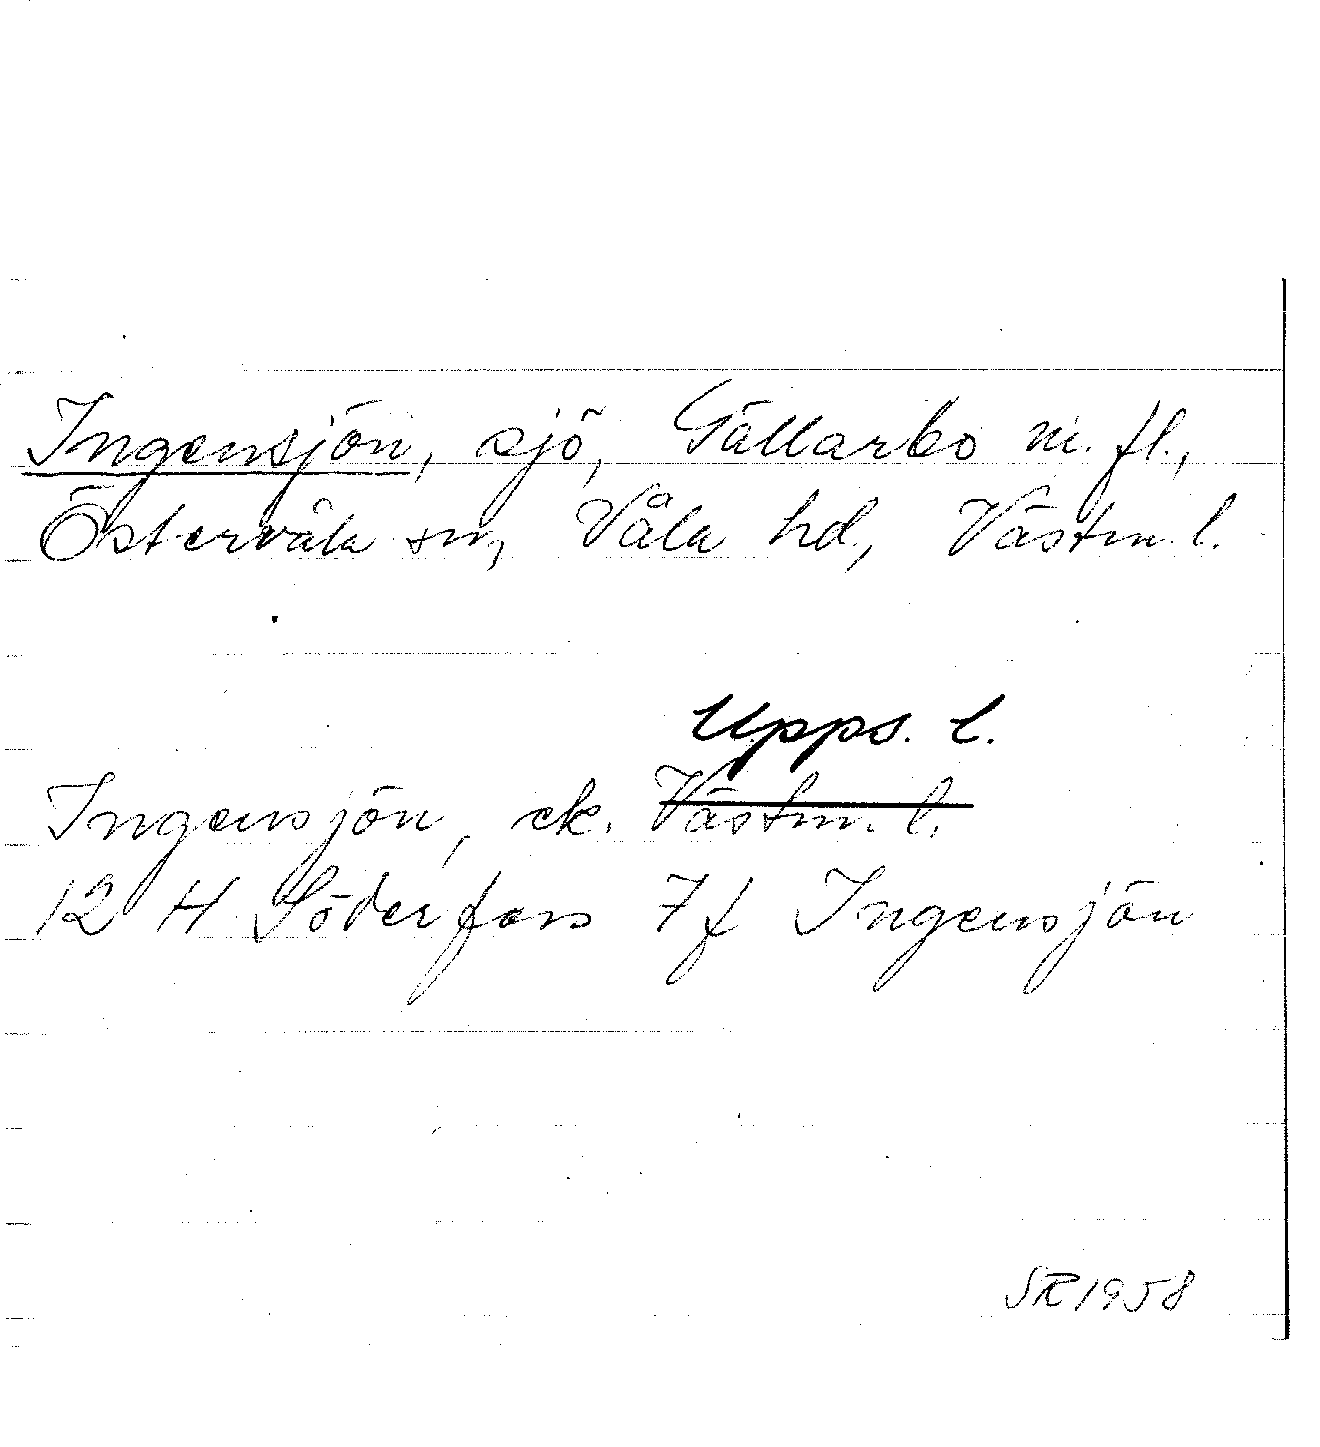 Ingensjön, sjö, Gällarbo m. fl.,
Östervåla sn, Våla hd, Västm. l.
Upps. l.
Ingensjön, ek. Västm. l.
12 H Söderfors 7f Ingensjön
SR 1958